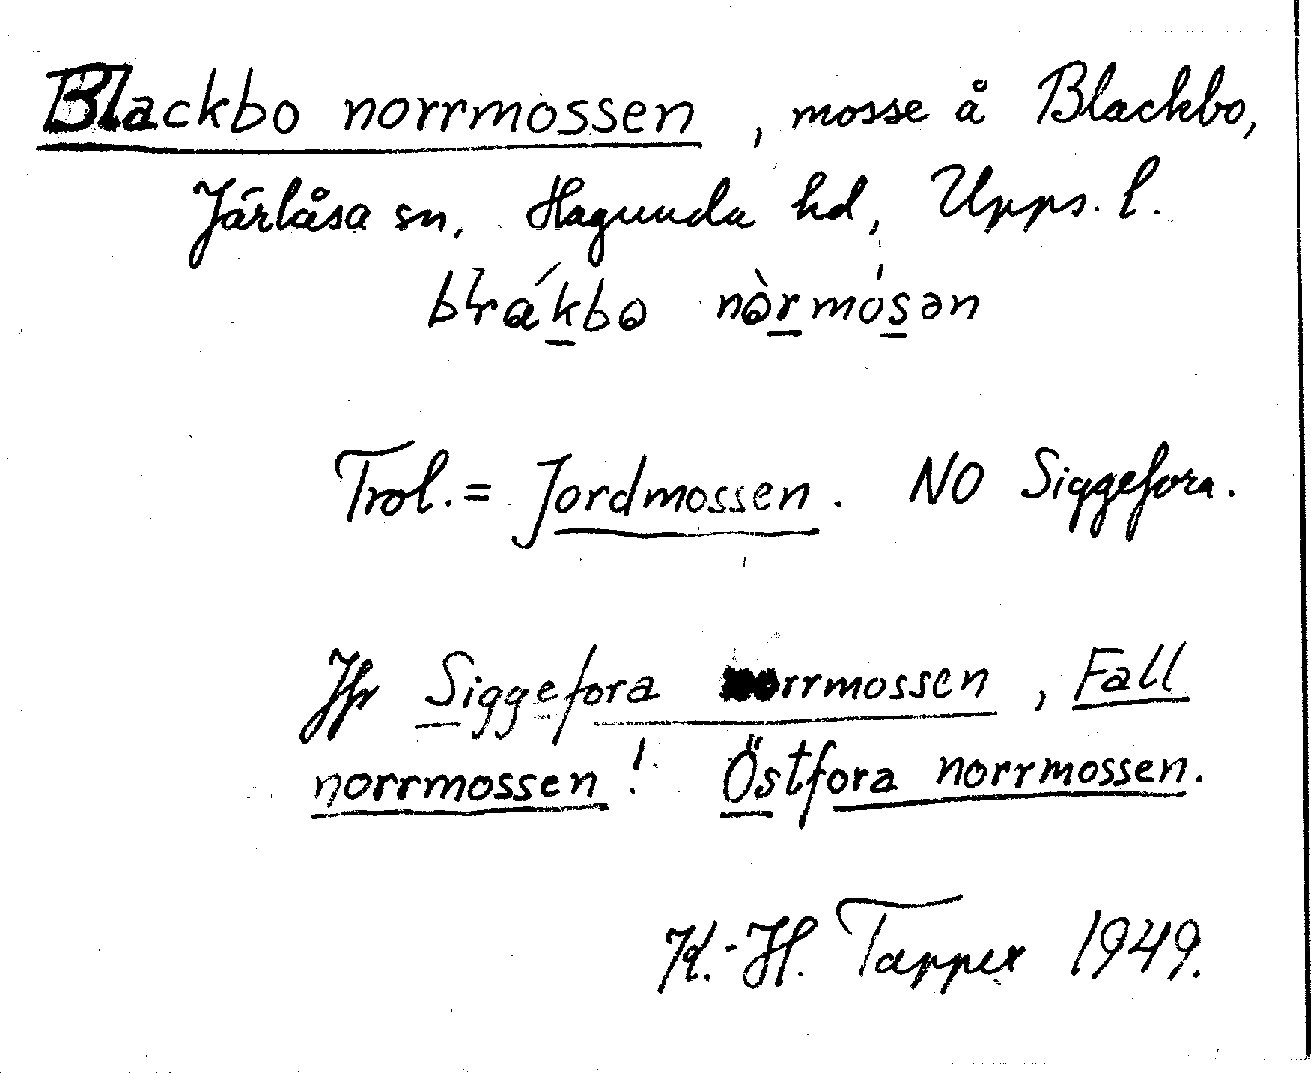 Blackbo norrmossen, mosse å Blackbo,
Järlåsa sn, Hagunda hd, Upps. l.
nòrmósən
Trol. = Jordmossen. NO Siggefora.
Jfr Siggefora norrmossen, Fall
norrmossen! Östfora norrmossen.
K.-H. Tapper 1949.